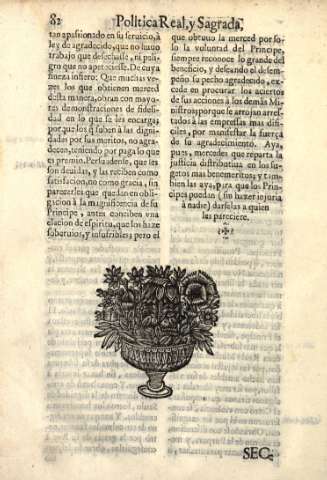 82
Politica Real, y Sagrada,
tan apasionado en su seruicio, à
ley de agradecido, que no hauo
trabajo que desechasse, ni peli-
gro que no apeteciesse. De cuya
fineza infiero: Que muchas ve-
zes los que obtienen merced
desta manera, obran con mayo-
res demonstraciones de fideli-
dad en lo que se les encarga,
porque los q̃ suben à las digni-
dades por sus meritos, no agra-
decen, teniendo por paga lo que
es premio. Persuadense, que les
son deuidas, y las reciben como
satisfacion, no como gracia, sin
parecerles que quedan en obli-
gacion à la magnificencia de su
Principe, antes conciben vna
elacion de espiritu, que los haze
soberuios, y insufribles; pero el
que obtuuo la merced por so-
lo la voluntad del Principe,
siempre reconoce lo grande del
beneficio, y deseando el desem-
peño su pecho agradecido, ex-
cede en procurar los aciertos
de sus acciones à los demàs Mi-
nistros, porque se arrojan arres-
tados à las empressas mas difi-
ciles, por manifestar la fuerça
de su agradecimiento. Aya,
pues, mercedes que reparta la
justicia distributiua en los su-
getos mas benemeritos; y tam-
bien las aya, para que los Prin-
cipes puedan (sin hazer injuria
à nadie) darselas a quien
les pareciere.
SEC-